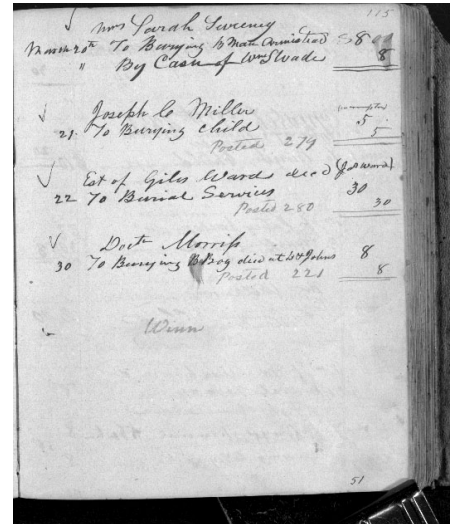 115
Mrs Sarah Sweeny
March 20th To Burying B Man Armistead $8 00
" By Cash of Wm Slvade 8
Joseph C Miller
21. To Burying child 5
5
Posted 279
Est of Giles Ward decd (Jas Ward)
22 To Burial Services 30
30
Posted 280
Doctr Morriss
30 To Burying B Boy died at St Johns 8
8
Posted 221
Winn
51